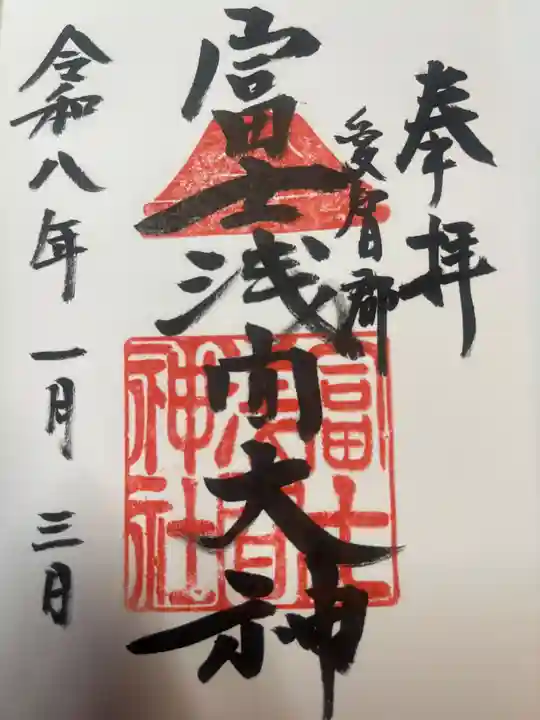 奉拝
愛知郡
富士浅間大神
富士
浅間
神社
令和八年 一月 三日